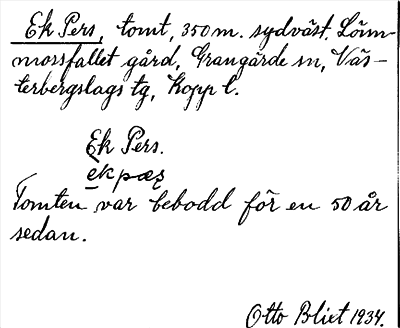 Ek Pers, tomt, 350 m. sydväst. Lönn-
mossfallet gård, Grangärde sn, Väs-
terbergslags tg, Kopp l.
Ek Pers.
ek pæʂ
Tomten var bebodd för en 50 år
sedan.
Otto Blixt 1934.